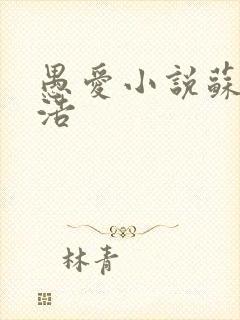 愚愛小說蘇
活
林青